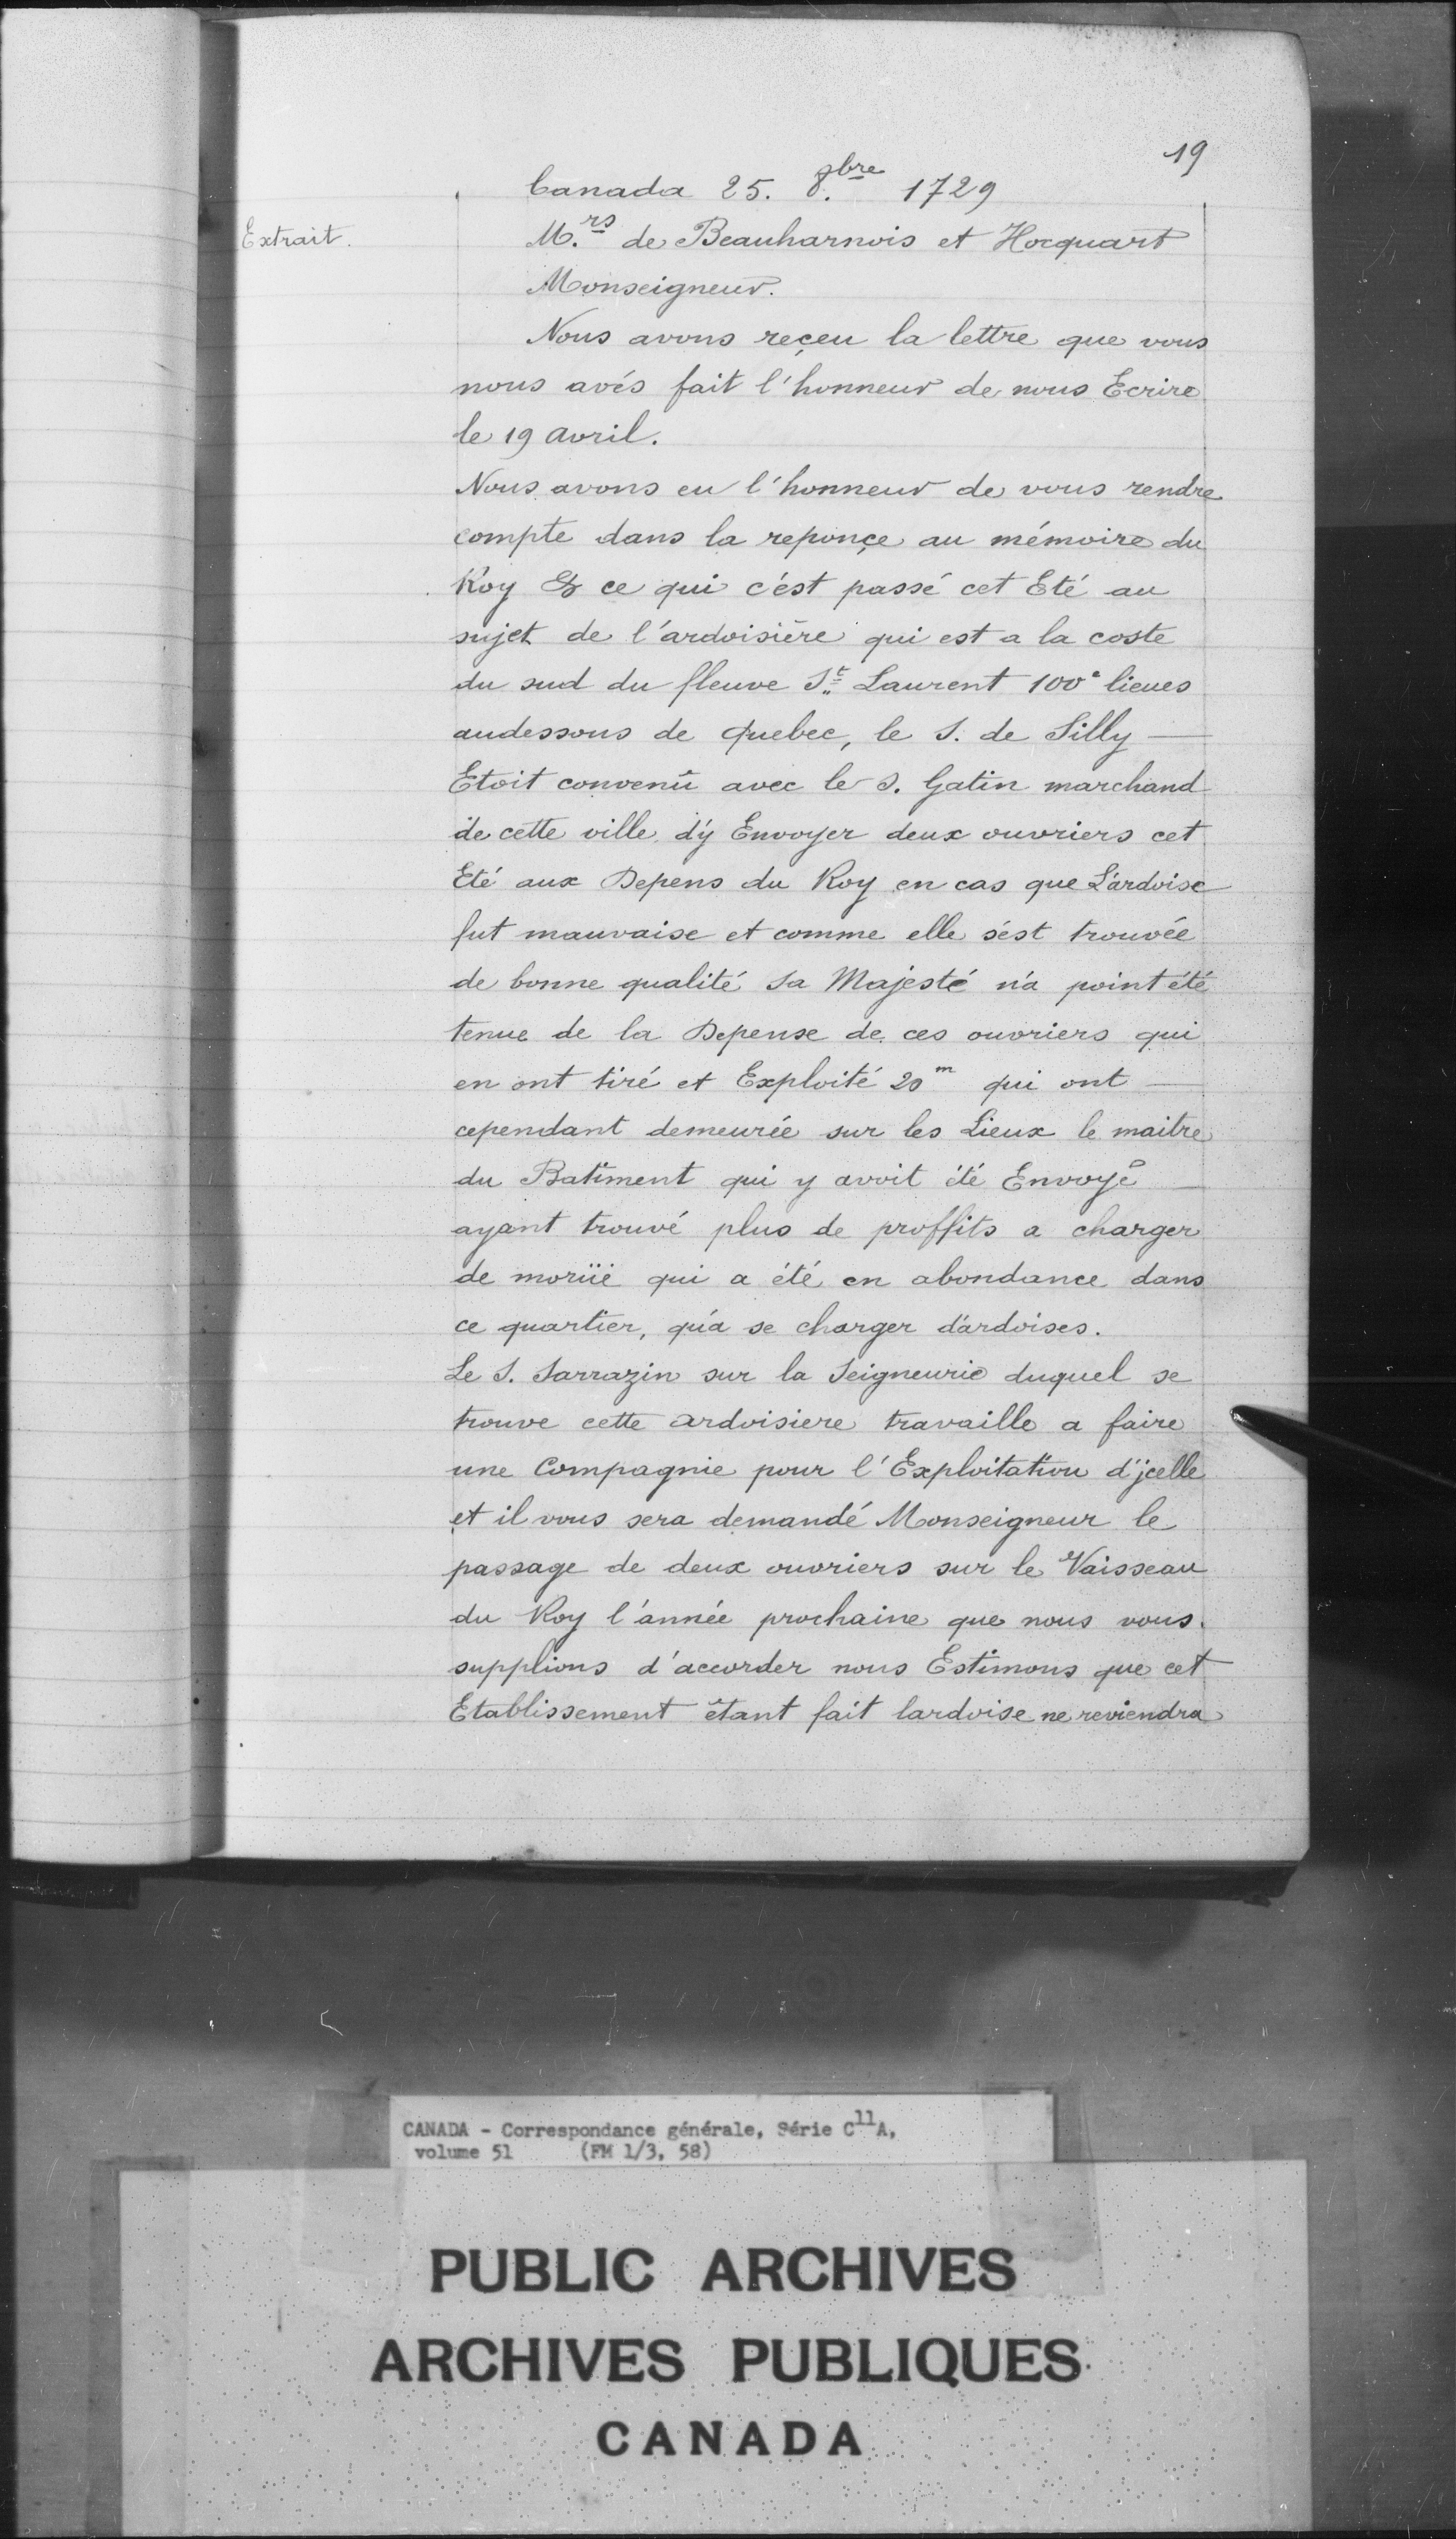 19
Canada 25. 8.bre 1729
Extrait.
M.rs de Beauharnois et Hocquart
Monseigneur.
Nous avons reçeu la lettre que vous
nous avés fait l'honneur de nous Ecrire
le 19 avril.
Nous avons eu l'honneur de vous rendre
compte dans la reponçe au mémoire du
Roy & ce qui c'est passé cet Eté au
sujet de l'ardoisière qui est a la coste
du sud du fleuve St Laurent 100e lieues
audessous de Quebec, le S. de Silly —
Etoit convenû avec le S. Gatin marchand
de cette ville d'y Envoyer deux ouvriers cet
Eté aux Depens du Roy en cas que L'ardoise
fut mauvaise et comme elle s'est trouvée
de bonne qualité Sa Majesté n'a point été
tenue de la Depense de ces ouvriers qui
en ont tiré et Exploité 20m qui ont —
cependant demeurée sur les Lieux le maitre
du Batiment qui y avoit été Envoyé —
ayant trouvé plus de proffits a charger
de morüe qui a été en abondance dans
ce quartier, qu'a se charger d'ardoises.
Le S. Sarrazin sur la Seigneurie duquel se
trouve cette ardoisiere travaille a faire
une Compagnie pour l'Exploitation d'jcelle
et il vous sera demandé Monseigneur le
passage de deux ouvriers sur le Vaisseau
du Roy l'année prochaine que nous vous
supplions d'accorder nous Estimons que cet
Etablissement étant fait lardoise ne reviendra
CANADA - Correspondance générale, Série C11A,
volume 51 (FM 1/3, 58)
PUBLIC ARCHIVES
ARCHIVES PUBLIQUES
CANADA